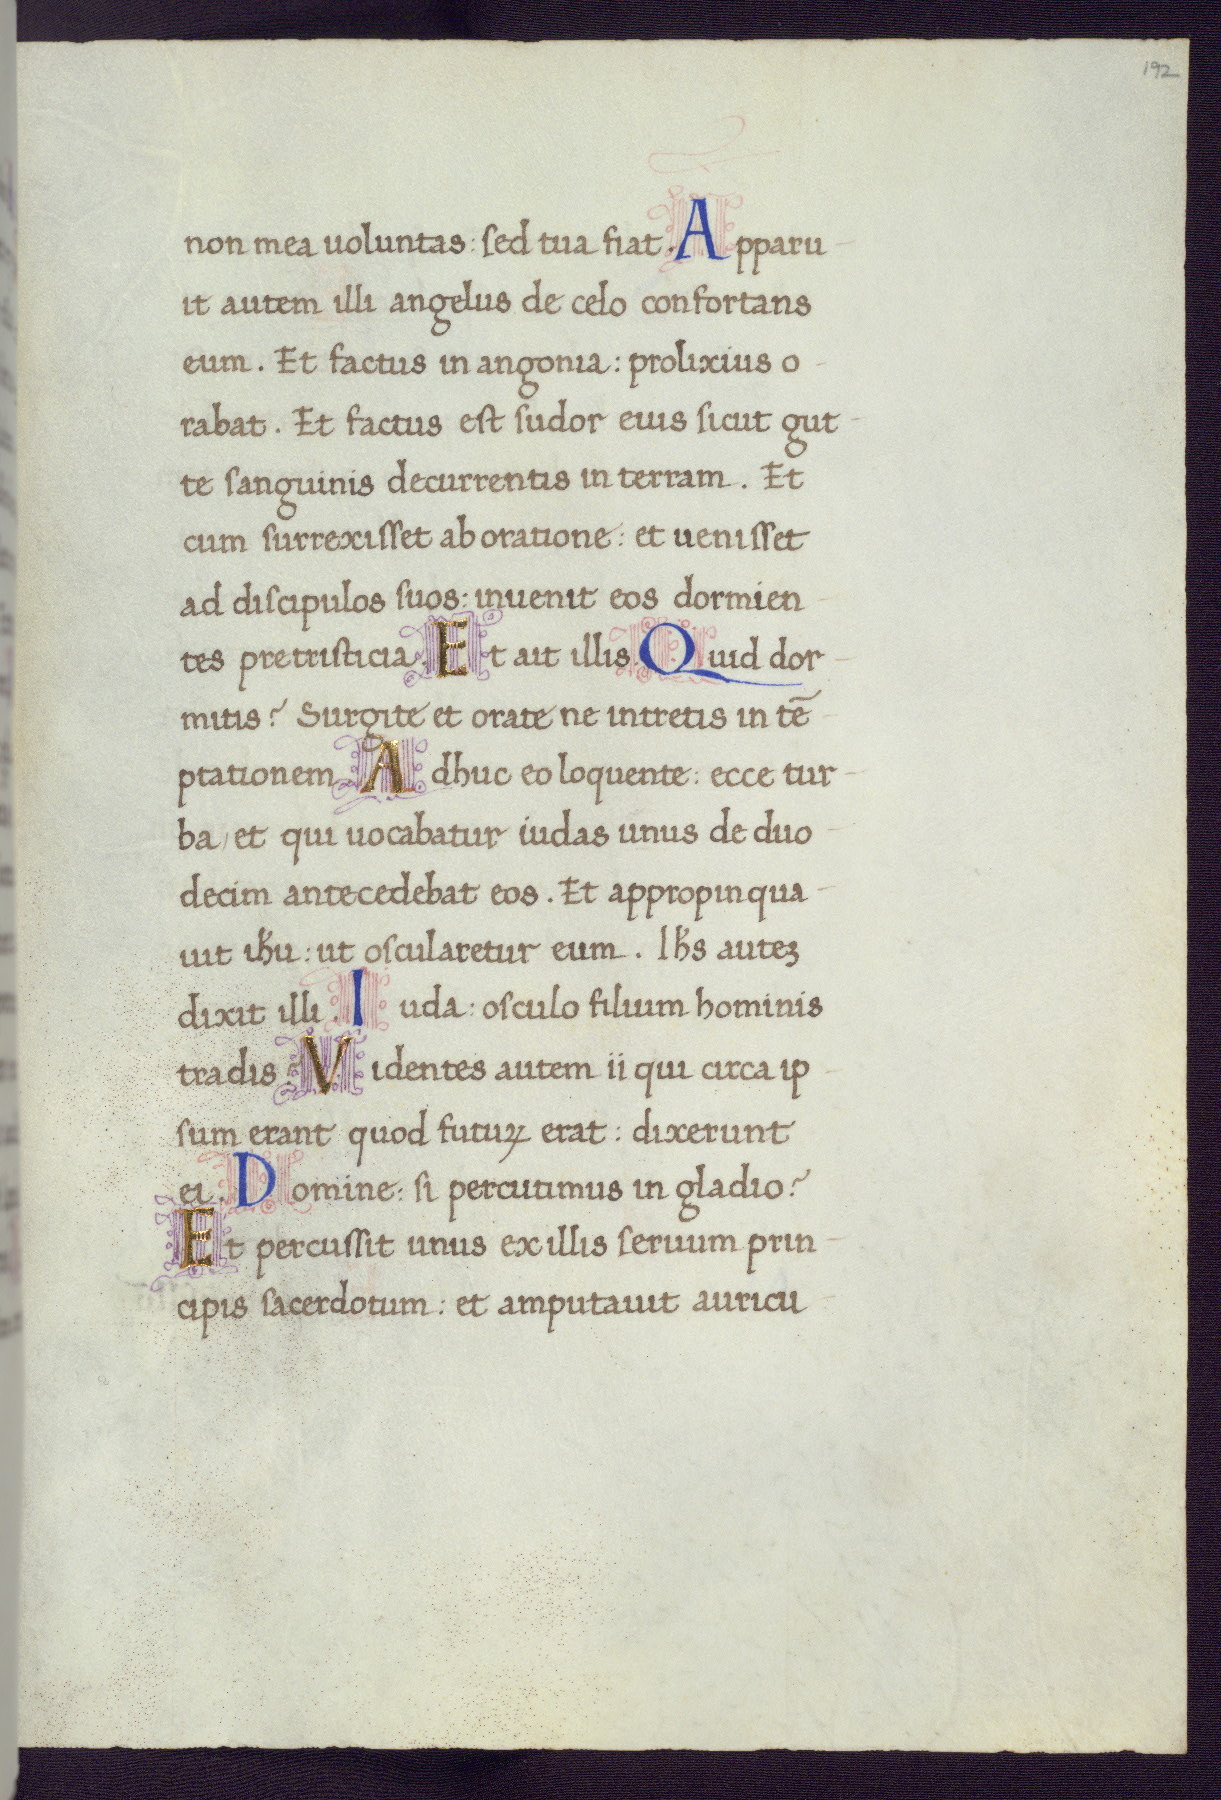 192
non mea uoluntas: sed tua fiat. Apparu-
it autem illi angelus de celo confortans
eum. Et factus in angonia: prolixius o-
rabat. Et factus est sudor eius sicut gut-
te sanguinis decurrentis in terram. Et
cum surrexisset ab oratione: et uenisset
ad discipulos suos: inuenit eos dormien-
tes pre tristicia. Et ait illis. Quid dor-
mitis? Surgite et orate ne intretis in tē-
ptationem. Adhuc eo loquente: ecce tur-
ba, et qui uocabatur iudas unus de duo-
decim antecedebat eos. Et appropinqua-
uit ihu: ut oscularetur eum. Ihs auteꝫ
dixit illi. Iuda: osculo filium hominis
tradis? Videntes autem ii qui circa ip-
sum erant quod futuꝝ erat: dixerunt
ei. Domine: si percutimus in gladio?
Et percussit unus ex illis seruum prin-
cipis sacerdotum: et amputauit auricu-